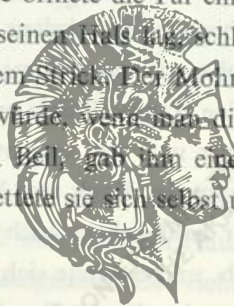 öffnete die Tür ein
seinen Hals lag, schl
em Strick. Der Mohr
würde, wenn man di
Beil, gab ihm eine
ettete sie sich selbst u